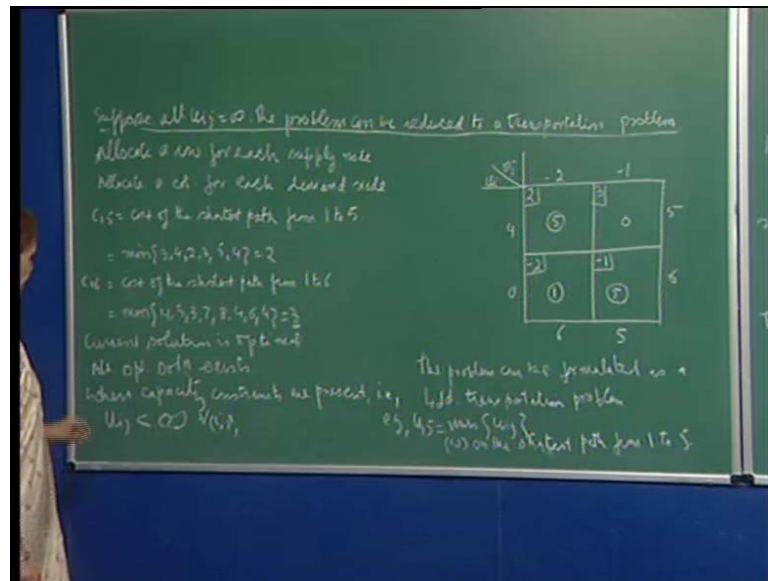 Suppose all uij = ∞. The problem can be reduced to a transportation problem
Allocate a row for each supply node
Allocate a col for each demand node
C15 = cost of the shortest path from 1 to 5
= min{3,4,2,3,5,4} = 2
C16 = cost of the shortest path from 1 to 6
= min{4,5,3,7,8,4,6,4} = 3
Current solution is optimal
No opt soln exists
where capacity constraints are present, i.e.,
uij < ∞ ∀(i,j),
vj -2 -1
ui
2 3
4 5 0 5
-2 -1
0 1 5 6
6 5
The problem can be formulated as a
bdd. transportation problem
eg, u15 = min{uij}
(i,j) on the shortest path from 1 to 5